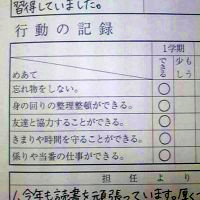 習得していました。
行動の記録
1学期
めあて
できる
少し
もう
忘れ物をしない。
○
身の回りの整理整頓ができる。
○
友達と協力することができる。
○
きまりや時間を守ることができる。
○
係りや当番の仕事ができる。
○
担任より
今年も読書を頑張っています。厚く